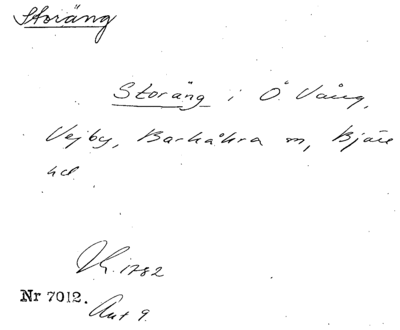 Storäng
Storäng i Ö. Vång,
Vejby, Barkåkra sn, Bjäre
hd.
1782
Nr 7012.
Akt 9.